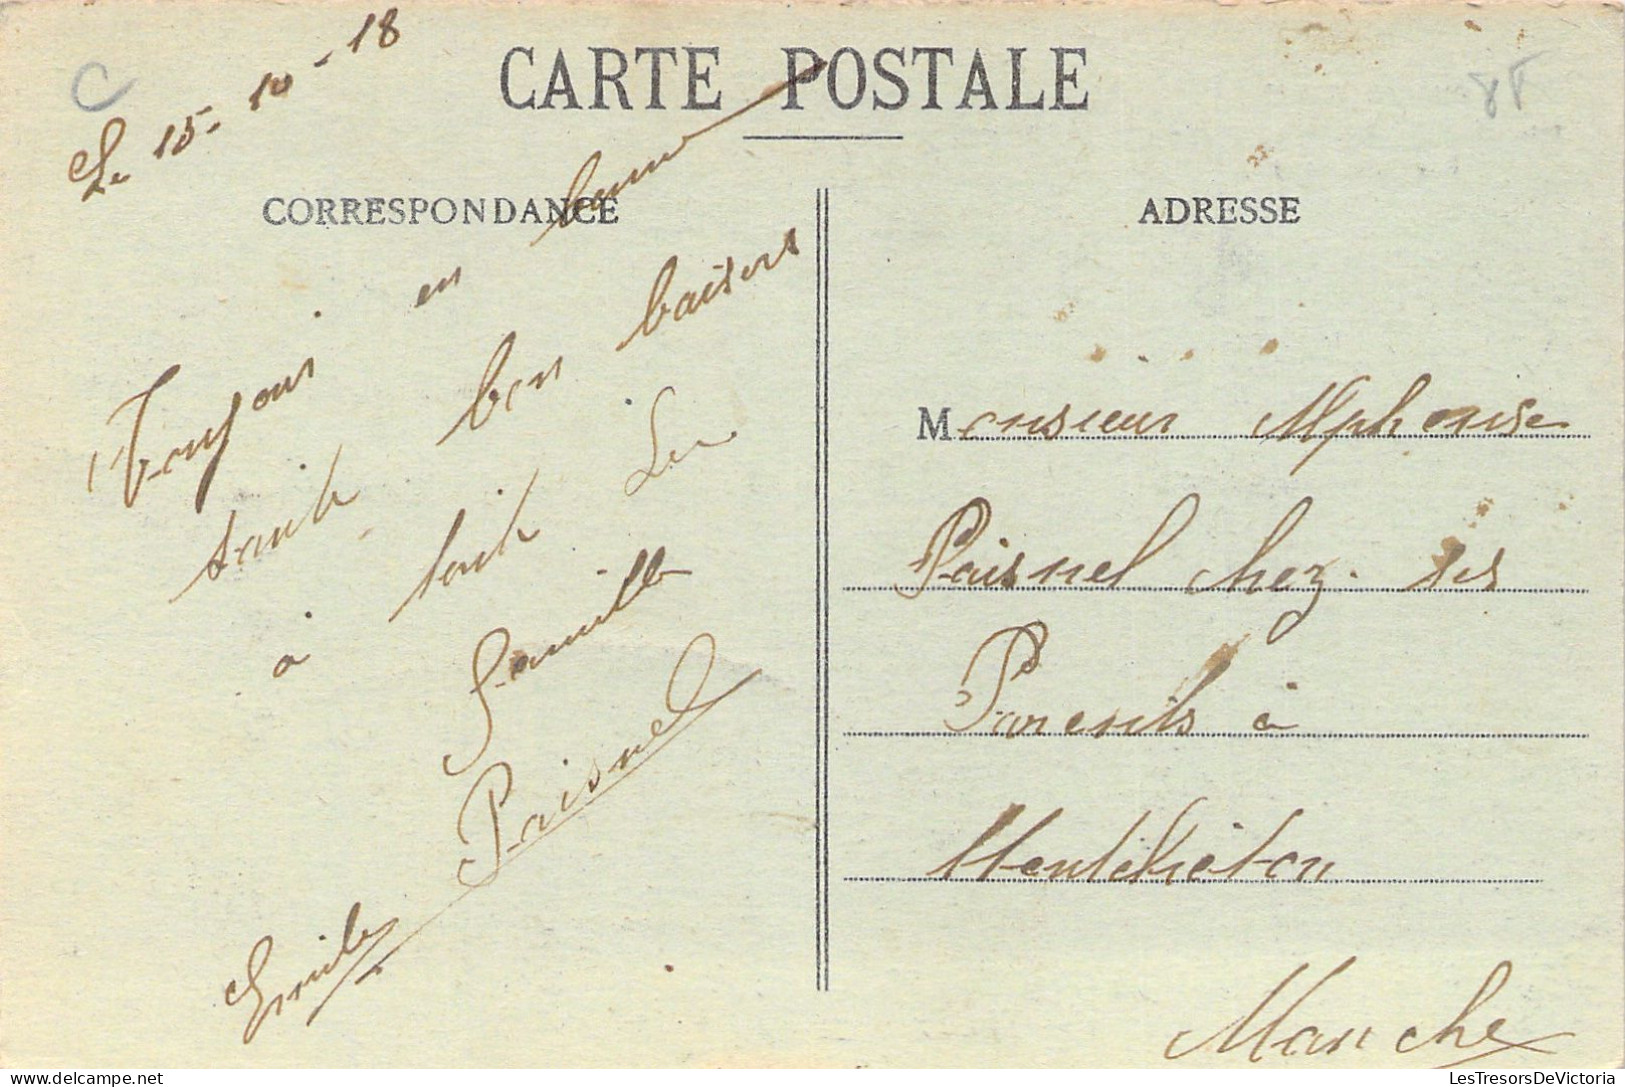 C
8T
Le 15-10-18
CARTE POSTALE
CORRESPONDANCE
ADRESSE
Toujour en bonne
santé bon baisers
à tout la
famille
Paisnel
Emile
Monsieur Alphonse
Paisnel chez ses
Parents à
Manche
LesTresorsDeVictoria